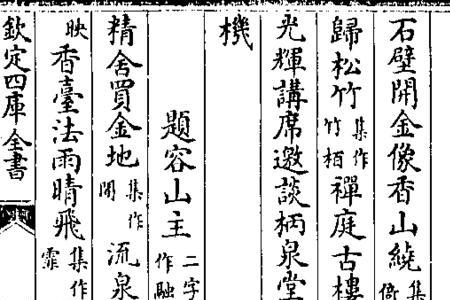 石壁開金像香山繞集
歸松竹集作竹栢禪庭古樓
光輝講席邀談柄泉堂
機
題容山主二字作融
精舍買金地集作開流泉
映香臺法雨晴飛集作霏
欽定四庫全書